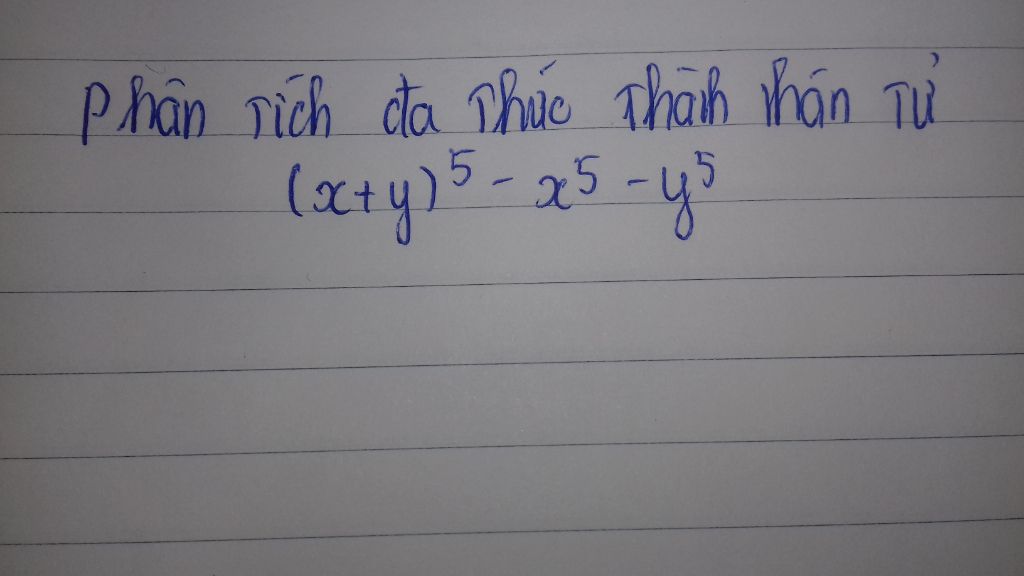 Phân tích đa thức thành nhân tử
(x+y)^5 - x^5 - y^5